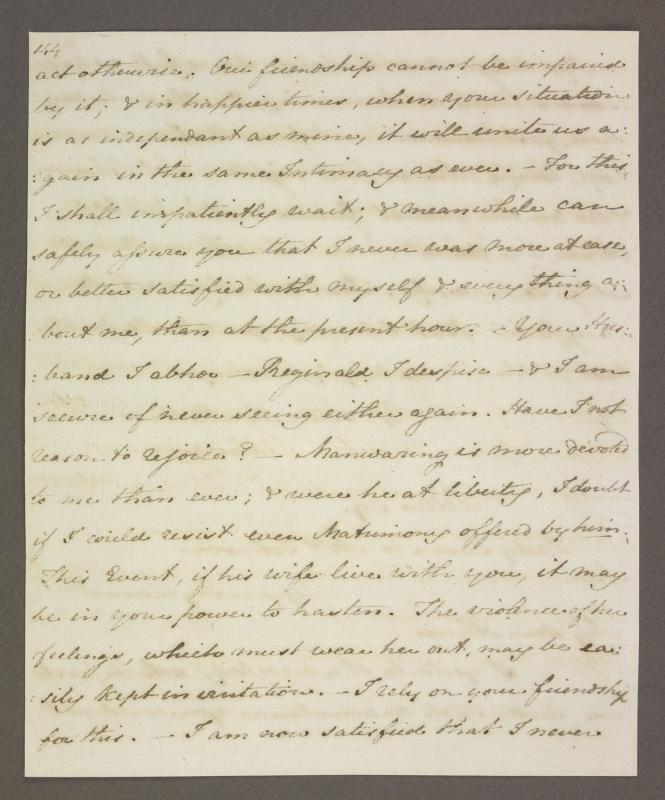 144
act otherwise. Our friendship cannot be impaired
by it; & in happier times, when your situation
is as independant as mine, it will unite us a:
:gain in the same Intimacy as ever. – For this
I shall impatiently wait; & meanwhile can
safely assure you that I never was more at ease,
or better satisfied with myself & every thing a:
:bout me, than at the present hour. – Your Hus:
:band I abhor – Reginald I despise – & I am
secure of never seeing either again. Have I not
reason to rejoice? – Manwaring is more devoted
to me than ever; & were he at liberty, I doubt
if I could resist even Matrimony offered by him.
This Event, if his wife live with you, it may
be in your power to hasten. The violence of her
feelings, which must wear her out, may be ea:
:sily kept in irritation. – I rely on your friendship
for this. – I am now satisfied that I never